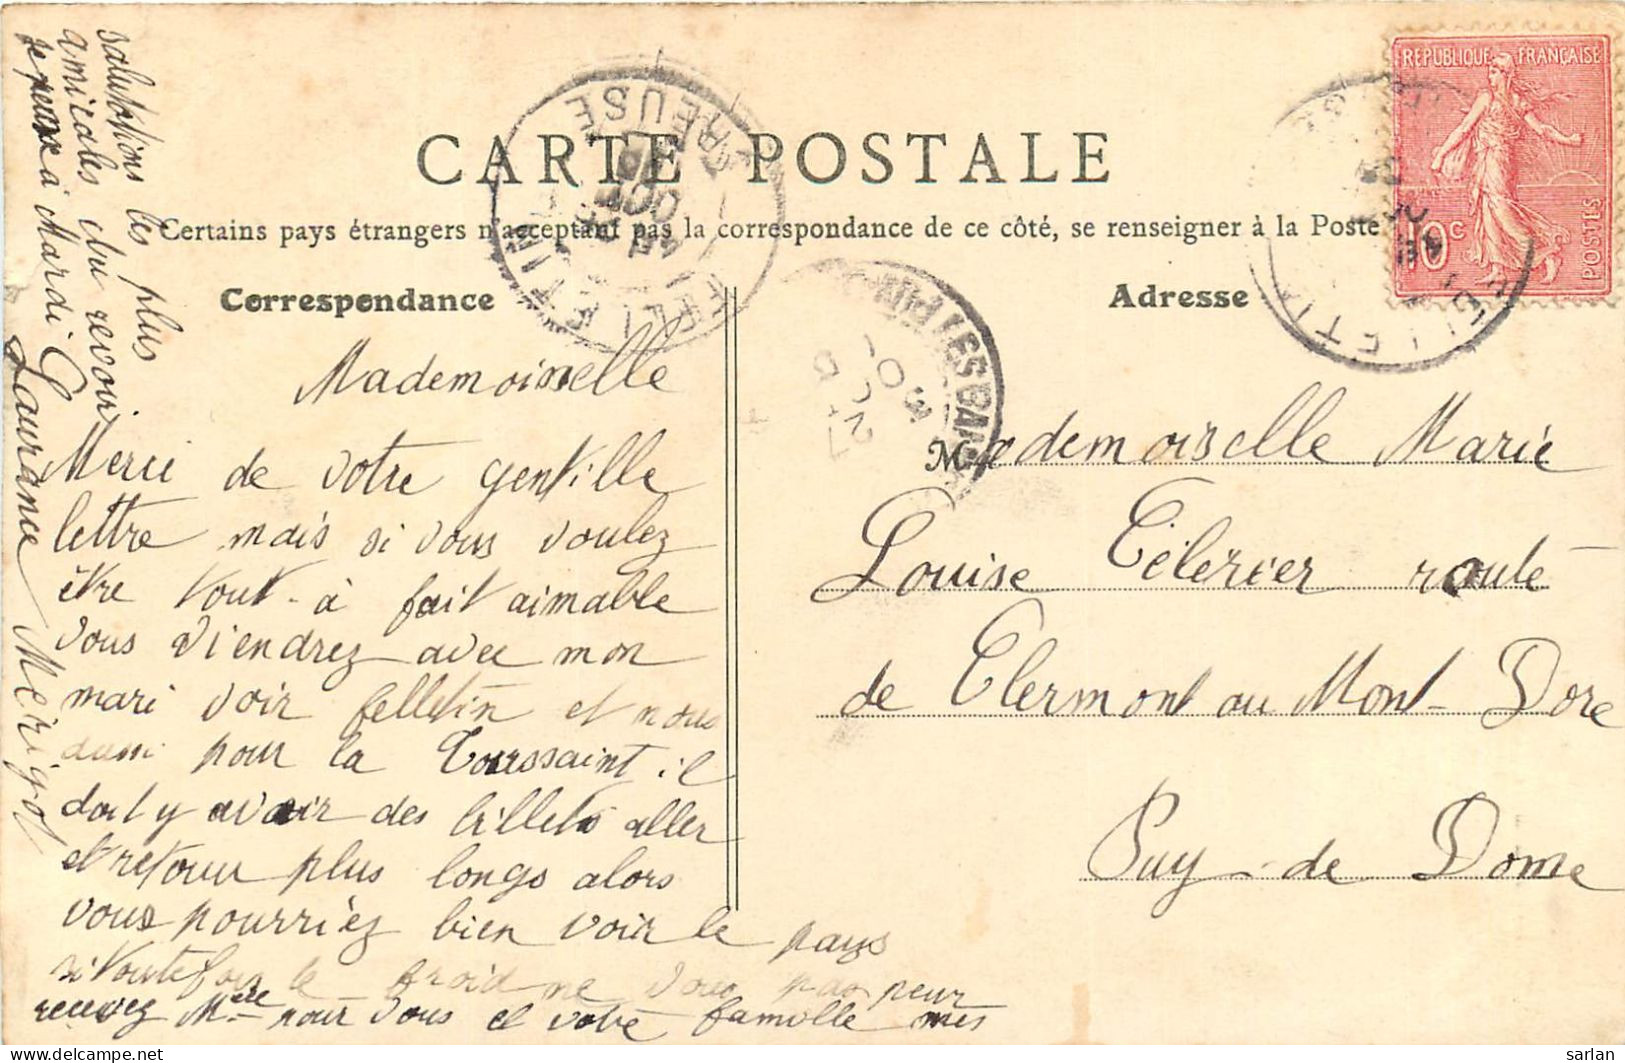 CARTE POSTALE
Certains pays étrangers n'acceptent pas la correspondance de ce côté, se renseigner à la Poste
Correspondance
Adresse
REPUBLIQUE FRANÇAISE
10c
POSTES
FELLETIN
CREUSE
Mademoiselle
Merci de votre gentille
lettre mais si vous voulez
être tout-à fait aimable
vous viendrez avec mon
mari voir felletin et nous
aussi pour la Toussaint il
doit y avoir des billets aller
et retour plus longs alors
vous pourriez bien voir le pays
si toutefois le froid ne vous pas peur
recevez Melle pour vous et votre famille mes
salutations les plus
amicales
à Mardi
Laurance Mérigot
Mademoiselle Marie
Louise Télérier route
de Clermont au Mont-Dore
Puy-de Dome
sarlan